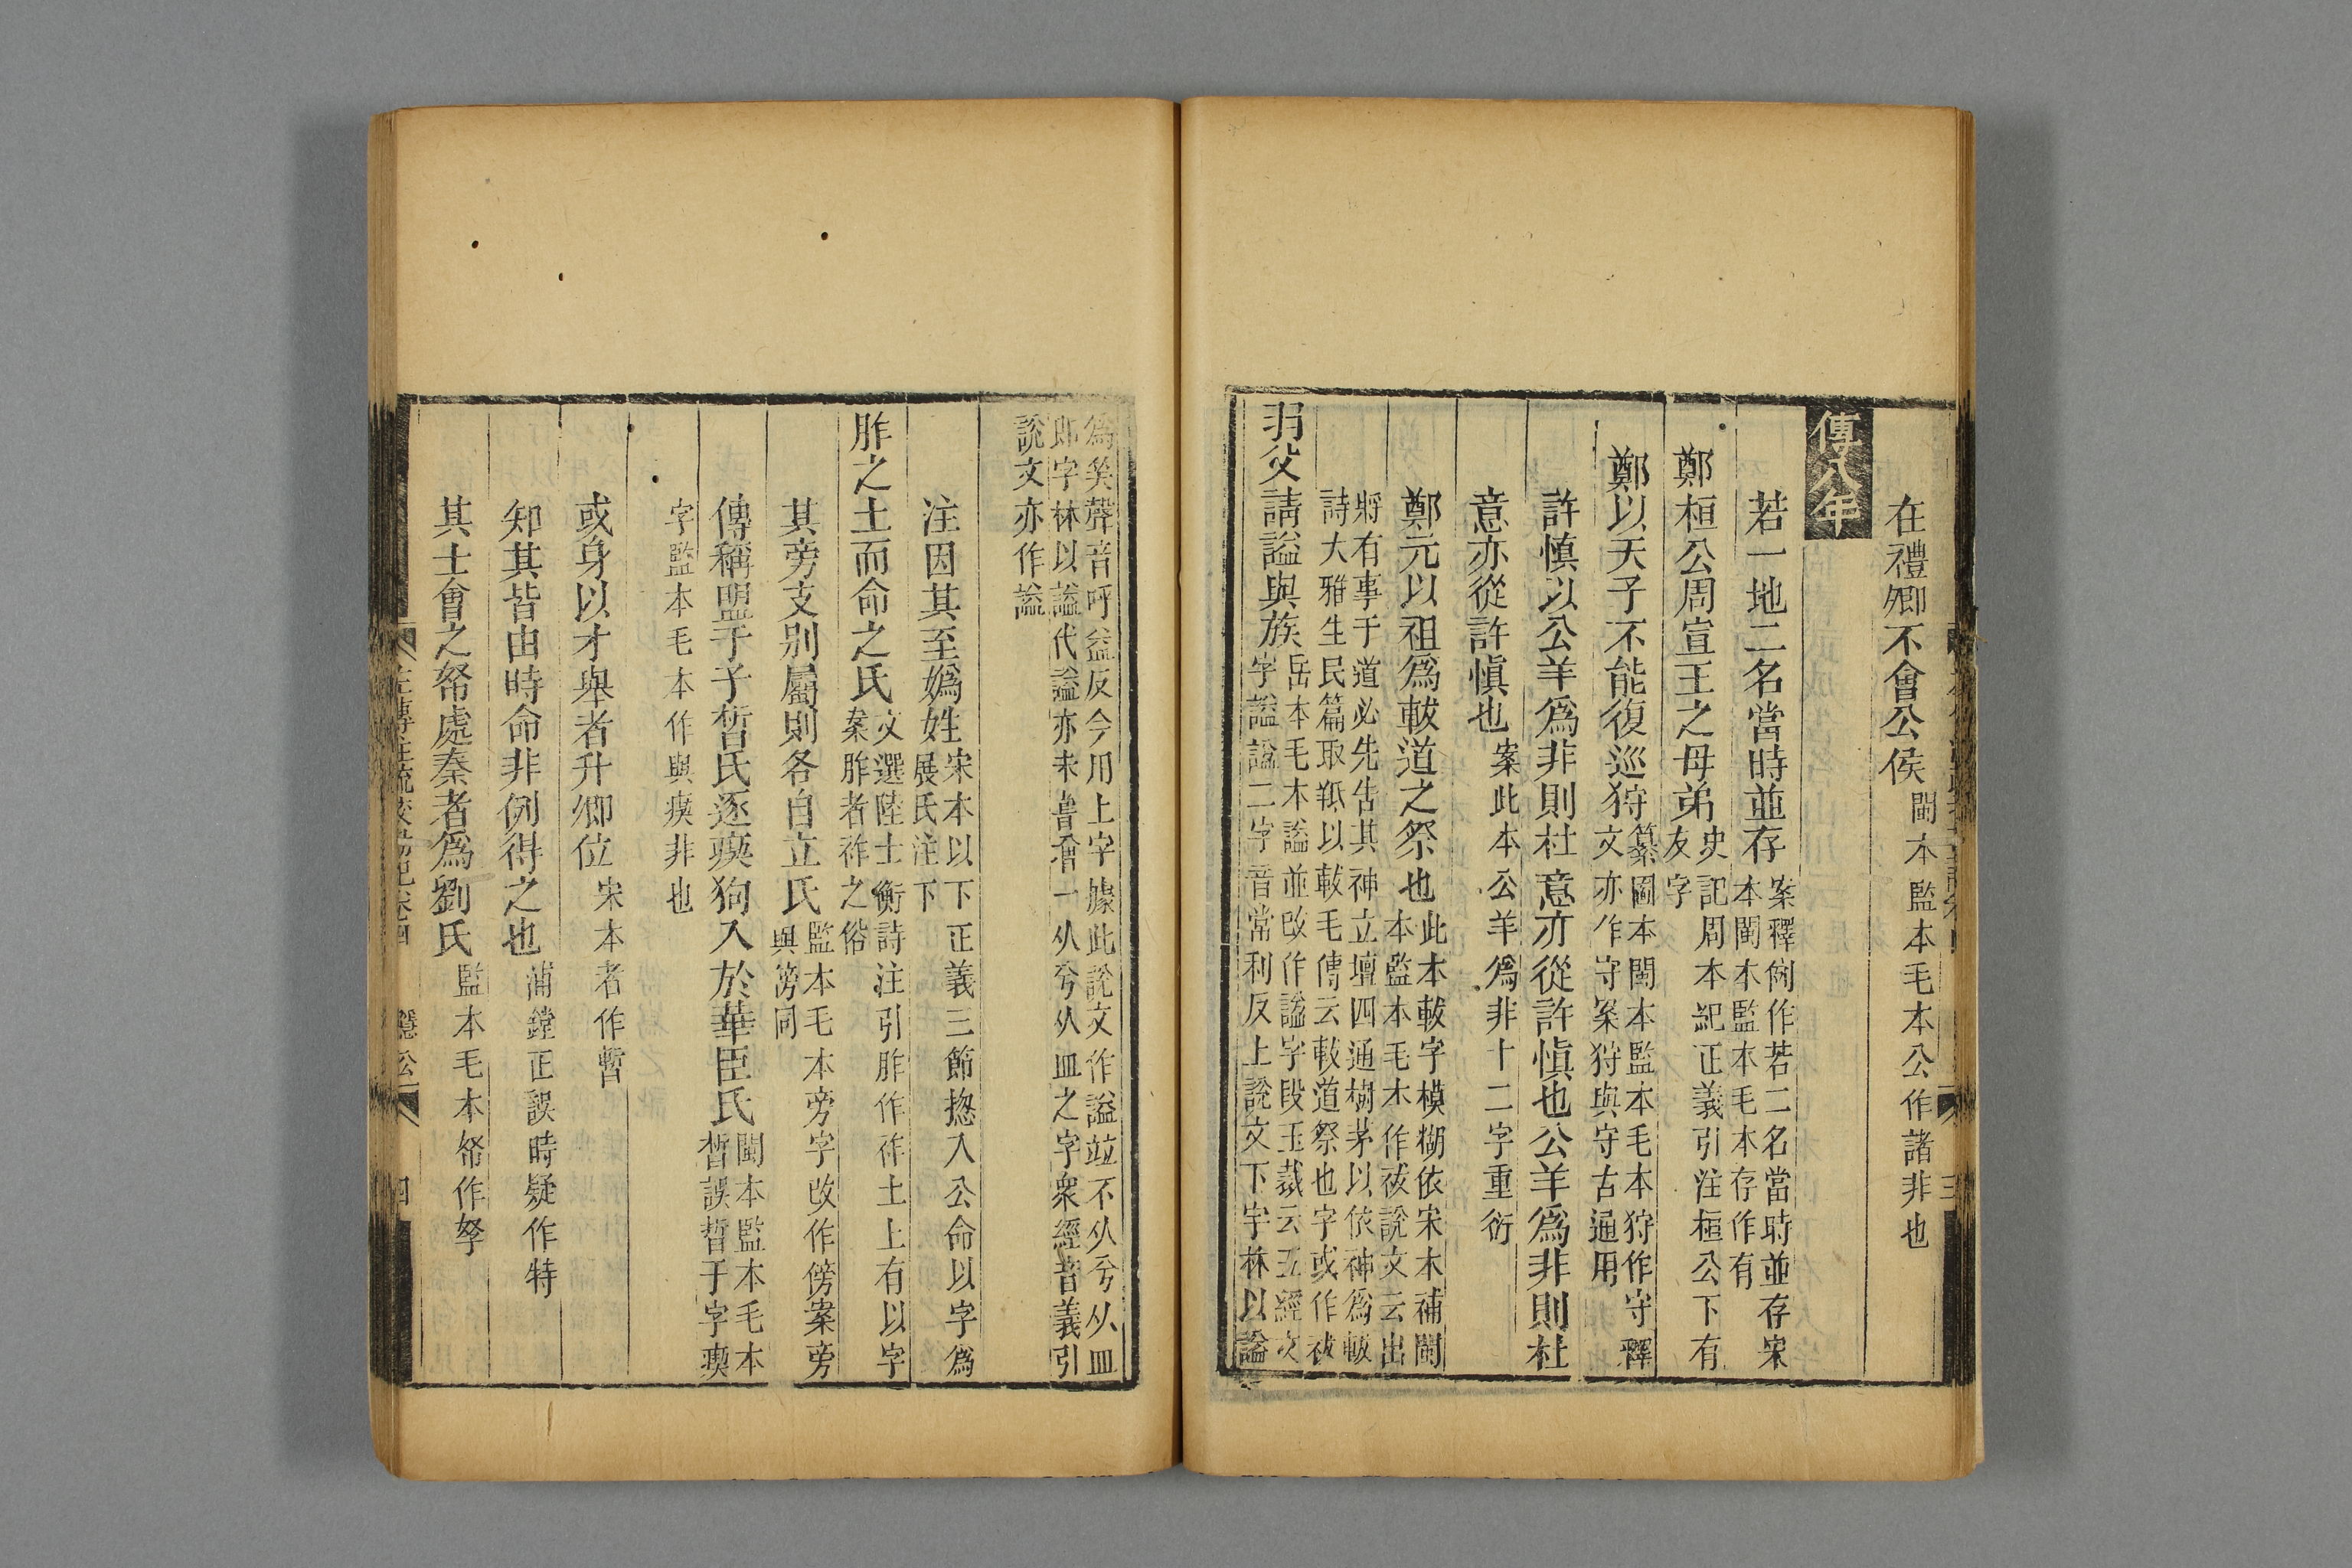 在禮卿不會公侯閩本監本毛本公作諸非也
傳八年
若一地二名當時並存案釋例作若二名當時並存宋
本閩本監本毛本存作有
鄭桓公周宣王之母弟史記周本紀正義引注桓公下有
友字
鄭以天子不能復巡狩纂圖本閩本監本毛本狩作守釋
文亦作守案狩與守古通用
許慎以公羊爲非則杜意亦從許慎也公羊爲非則杜
意亦從許慎也案此本公羊爲非十二字重衍
鄭元以祖爲軷道之祭也此本軷字模糊依宋本補閩
本監本毛本作祓說文云出
將有事于道必先告其神立壇四通樹茅以依神爲軷
詩大雅生民篇取羝以軷毛傳云軷道祭也字或作祓
羽父請謚與族岳本毛本謚並改作諡字段玉裁云五經文
字謚諡二字音常利反上說文下字林以謚
爲笑聲音呼益反今用上字據此說文作謚竝不从兮从皿
即字林以謚代諡亦未嘗增一从兮从皿之字衆經音義引
說文亦作謚
注因其至嬀姓宋本以下正義三節揔入公命以字爲
展氏注下
胙之土而命之氏文選陸士衡詩注引胙作祚土上有以字
案胙者祚之俗
其旁支別屬則各自立氏監本毛本旁字改作傍案旁
與傍同
傳稱盟于子晳氏逐瘈狗入於華臣氏閩本監本毛本
晳誤晢于字瘈
字監本毛本作與瘈非也
或身以才舉者升卿位宋本者作暫
知其皆由時命非例得之也浦鏜正誤時疑作特
其士會之帑處秦者爲劉氏監本毛本帑作孥
隱公
四